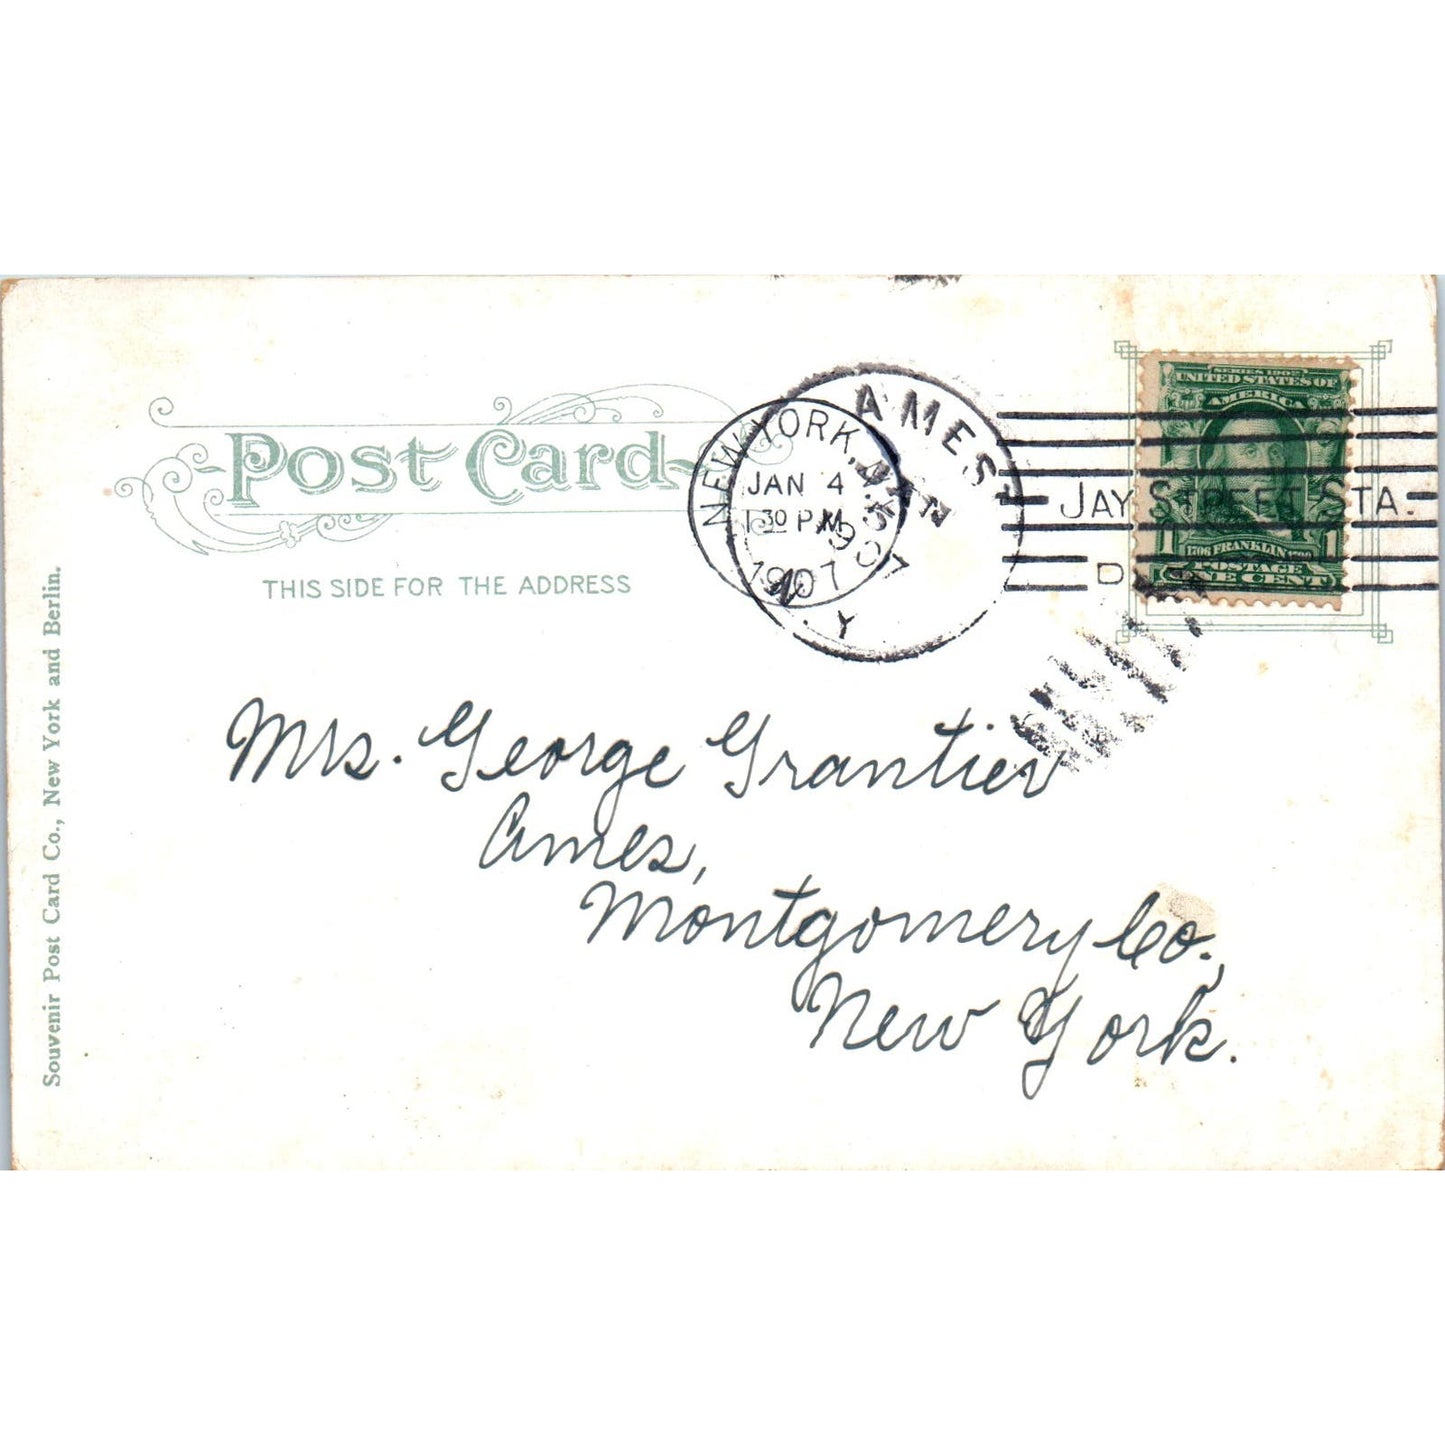 Post Card
THIS SIDE FOR THE ADDRESS
Souvenir Post Card Co., New York and Berlin.
NEW YORK, N.Y.
JAN 4
1 30 PM
1907
AMES
JAN
5
1907
N.Y.
JAY STREET STA.
D
SERIES 1902
UNITED STATES OF
AMERICA
1706 FRANKLIN 1790
1 POSTAGE 1
ONE CENT
Mrs. George Grantier
Ames,
Montgomery Co.,
New York.